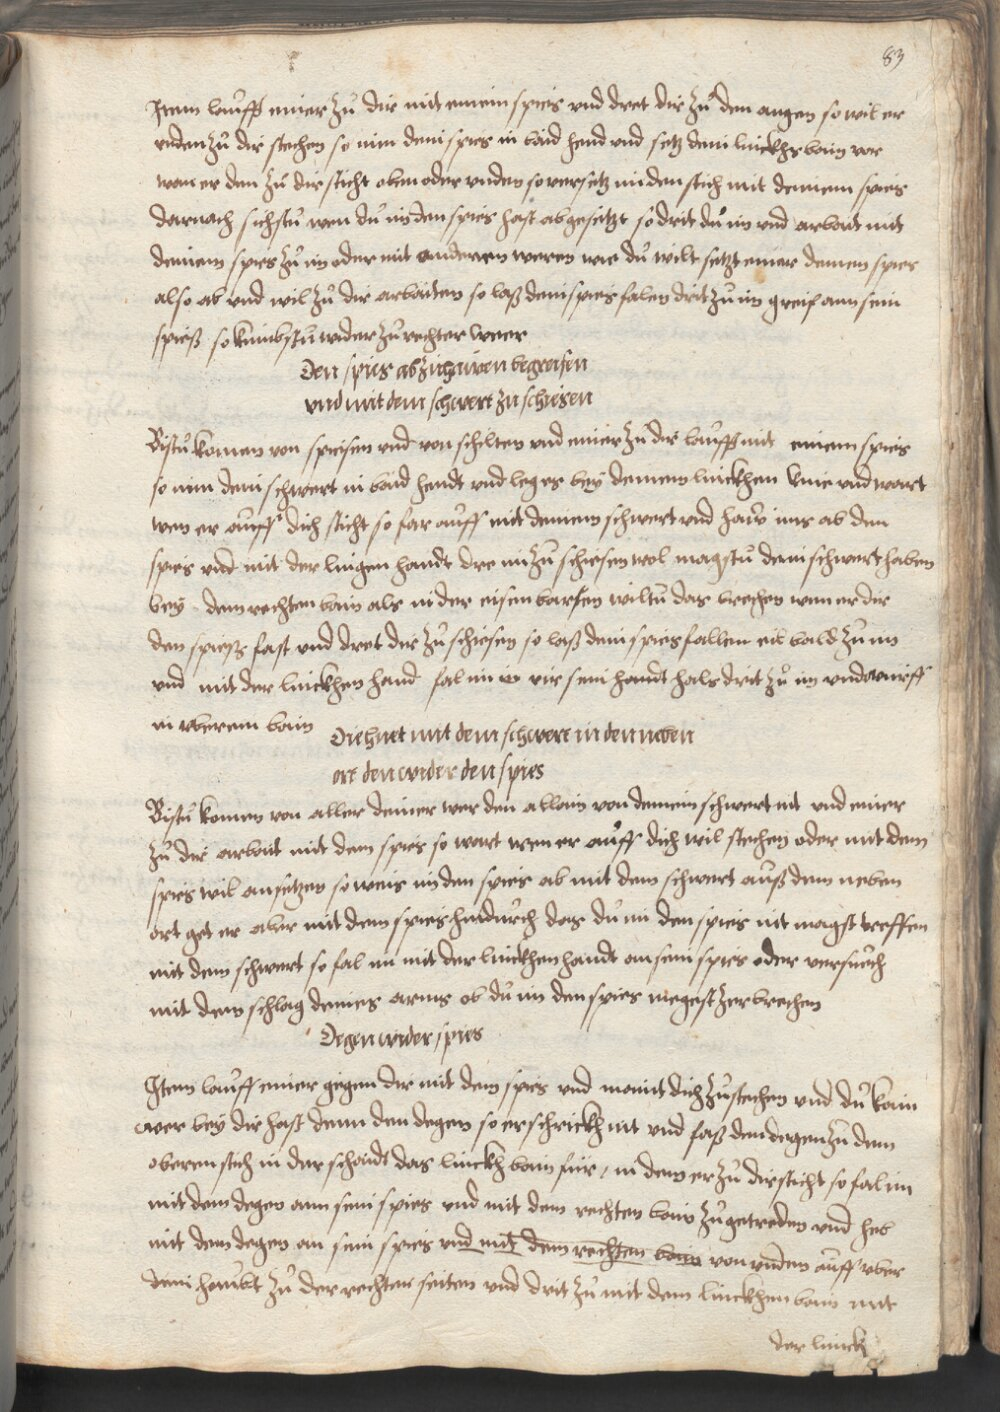 83
Item lauff einer zu dir mit einem spies und dret dir zu den augen so wil er
unden zu dir stechen so nim dein spies in baid hend und setz dein linckhs bain vor
wan er den zu dir sticht oben oder unden so versetz im den stich mit deinem spies
darnach sichstu wen du im den spies hast abgesetzt so drit du im und arbait mit
deinem spies zu im oder mit anderen weren wie du wilt setzt einer deinen spies
also ab und wil zu dir arbaiten so laß dein spies falen drit zu im greif ann sein
spieß so kumbstu wider zu rechter weer
Den spies abzuhauen begreifen
und mit dem schwert zu schiesen
Bistu komen von speisen und von schilten und einer zu dir lauff mit einem spies
so nim dein schwert in baid hendt und leg es bey deinem linckhen knie und wart
wen er auff dich sticht so far auff mit deinem schwert und haw ims ab den
spies und mit der lingen handt dre im zu schiesen wol magstu dein schwert haben
bey dem rechten bain als in der eisen barten wiltu das brechen wen er dir
den spiess fast und dret dir zu schiesen so laß dein spies fallen eil bald zu im
und mit der linckhen hand fal im in vir sein handt hals drit zu im und wirff
in vberein bain
Die huet mit dem schwert in den neben
ort den wider den spies
Bistu komen von aller deiner wer den allain von deinem schwert nit und einer
zu dir arbait mit dem spies so wart wen er auff dich wil stechen oder mit dem
spies wil ansetzen so weis im den spies ab mit dem schwert auß dem neben
ort get er aber mit dem spies hindurch das du im den spies nit magst treffen
mit dem schwert so fal im mit der linckhen handt an sein spies oder versuech
mit dem schlag deines arms ob du im den spies megest zerbrechen
Degen wider spies
Item lauff einer gegen dir mit dem spies und maint dich zu stechen und du kain
wer bey dir hast denn den degen so erschrickh nit und faß den degen zu dem
oberen stich in der schaidt das linckh bain fiir in dem er zu dir sticht so fal im
mit dem degen ann sein spies und mit dem rechten bain zugetreden und heb
mit dem degen an sein spies und mit dem rechten bain von unden auff vber
dein haubt zu der rechten seiten und drit zu mit dem linckhen bain mit
der linck